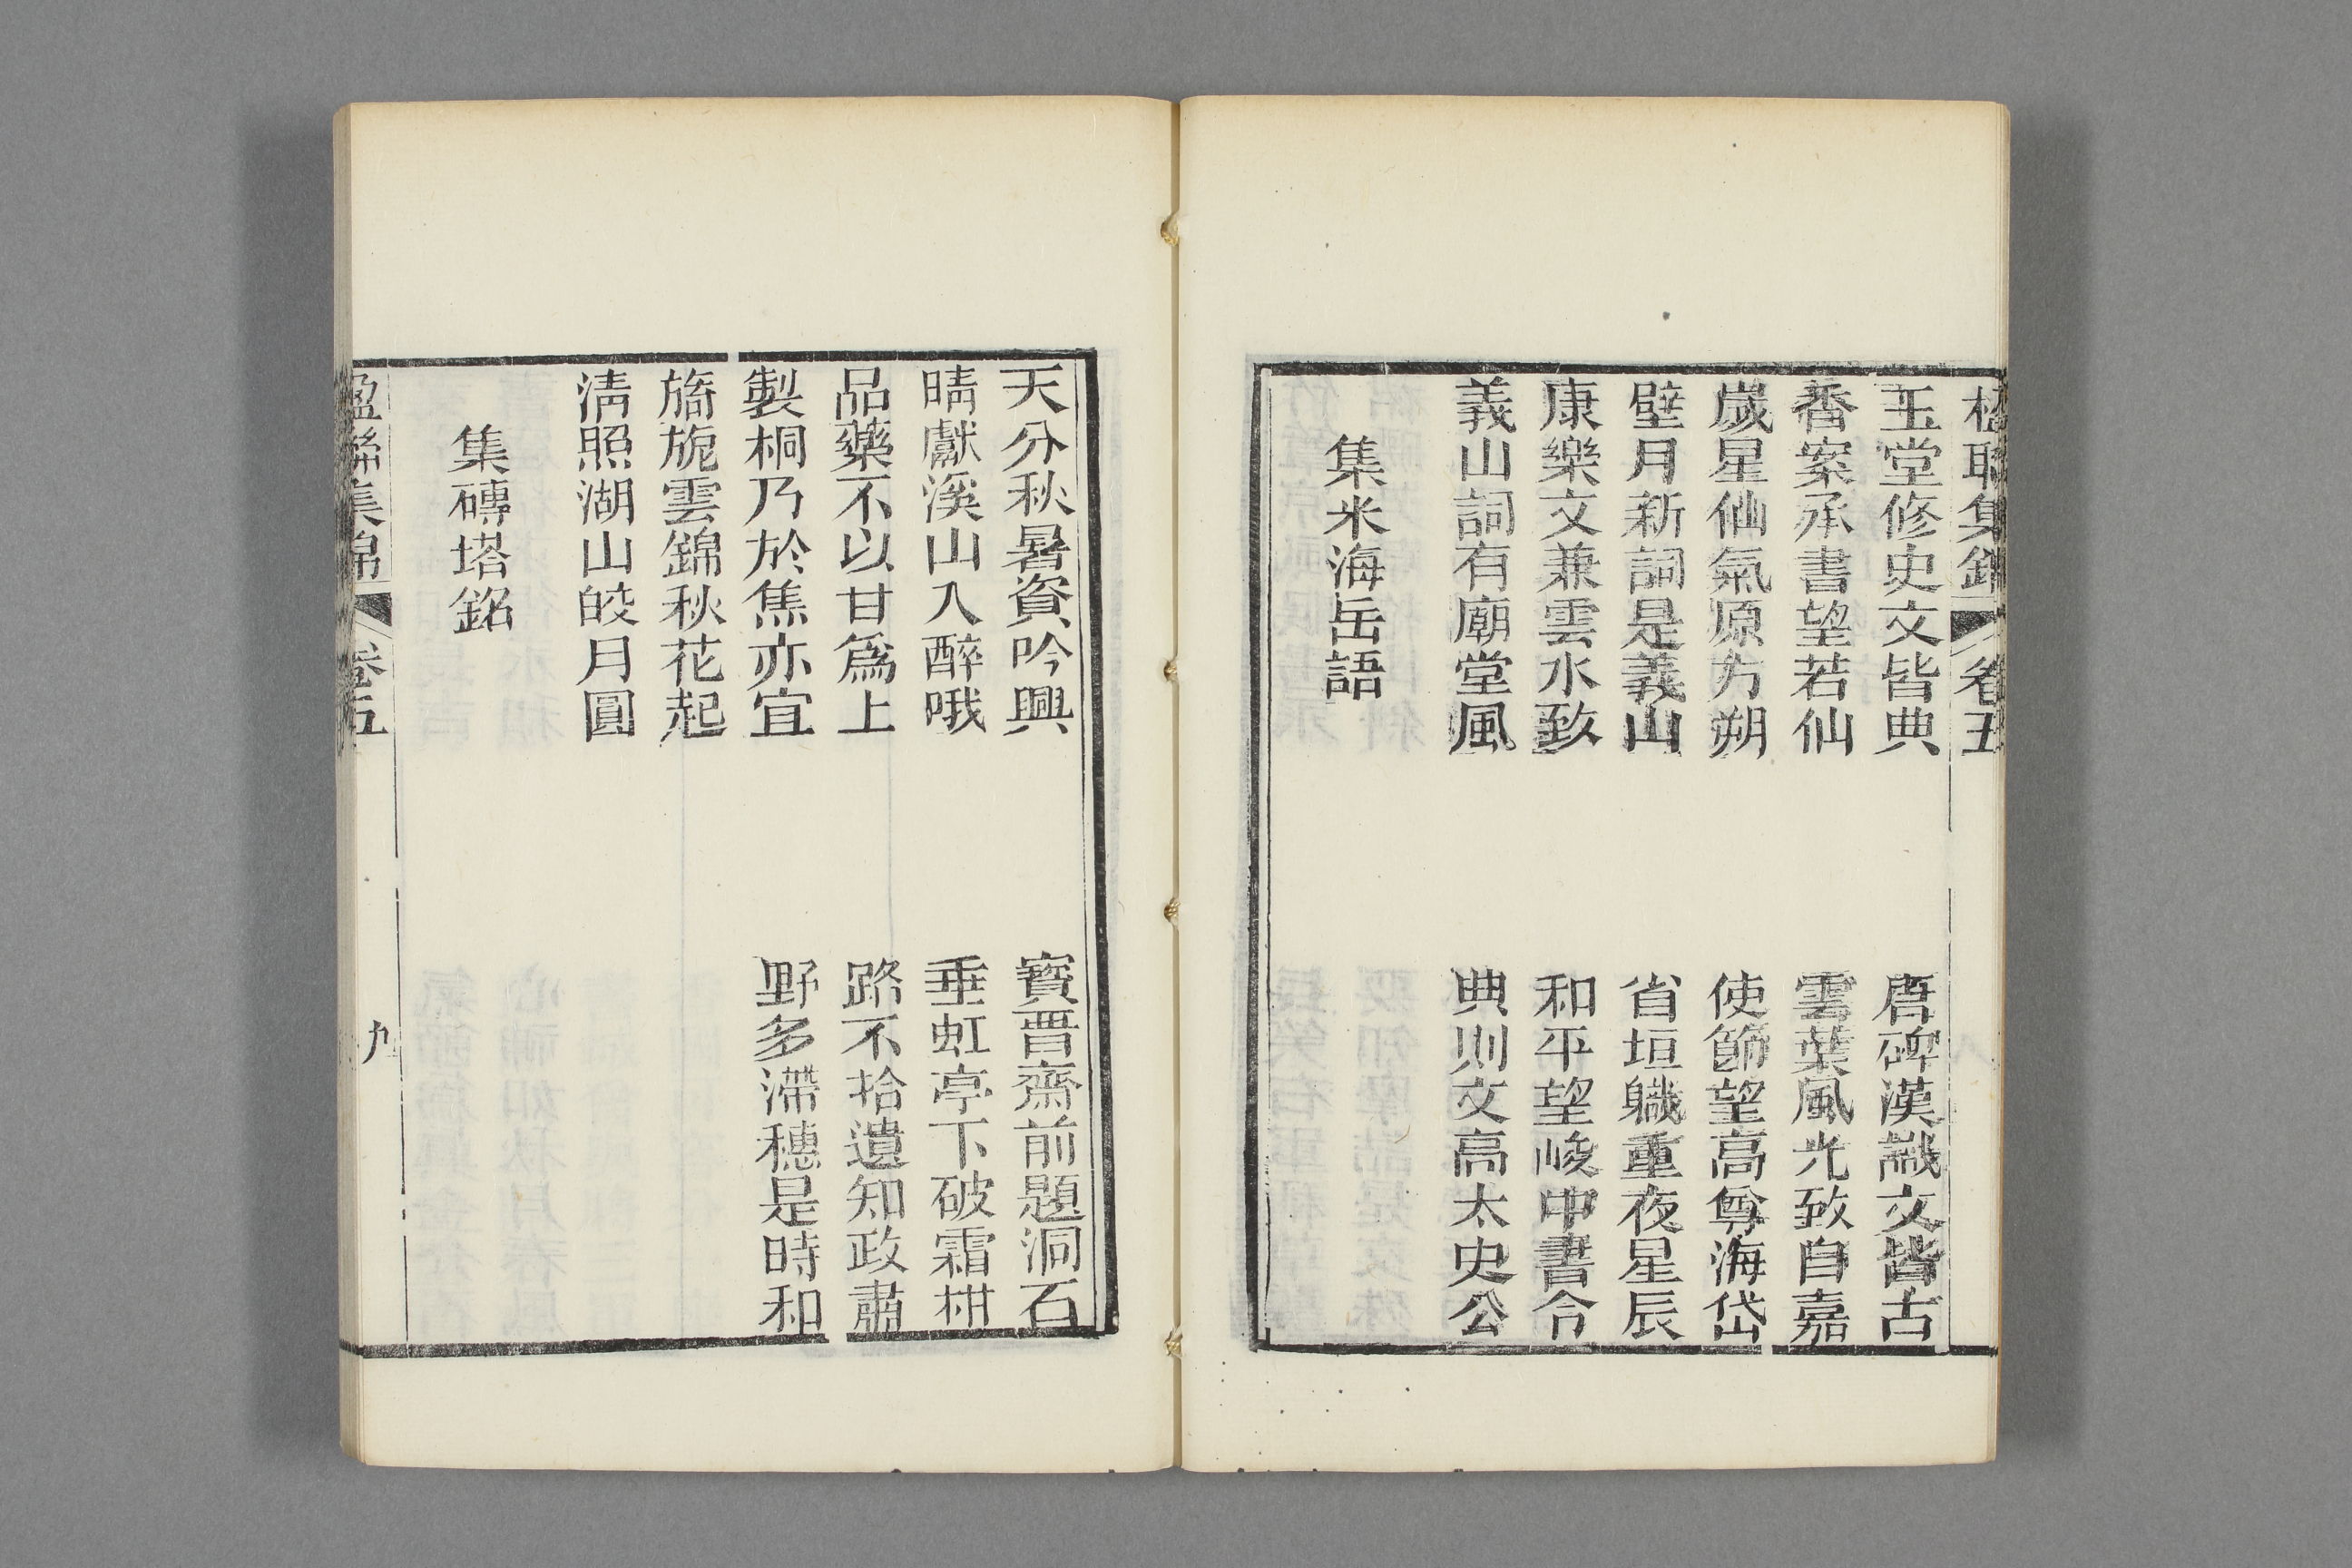 楹聯集錦 卷五
玉堂修史文皆典 唐碑漢識文皆古
香案承書望若仙 雲葉風光致自嘉
歲星仙氣原方朔 使節望高尊海岱
壁月新詞是義山 省垣軄重夜星辰
康樂文兼雲水致 和平望峻中書令
義山詞有廟堂風 典則文高太史公
集米海岳語
天分秋暑資吟興 寶晋齋前題洞石
晴獻溪山入醉哦 垂虹亭下破霜柑
品藥不以甘爲上 路不拾遺知政肅
製桐乃於焦亦宜 野多滯穗是時和
旖旎雲錦秋花起
淸照湖山皎月圓
集磚塔銘
楹聯集錦 卷五 九